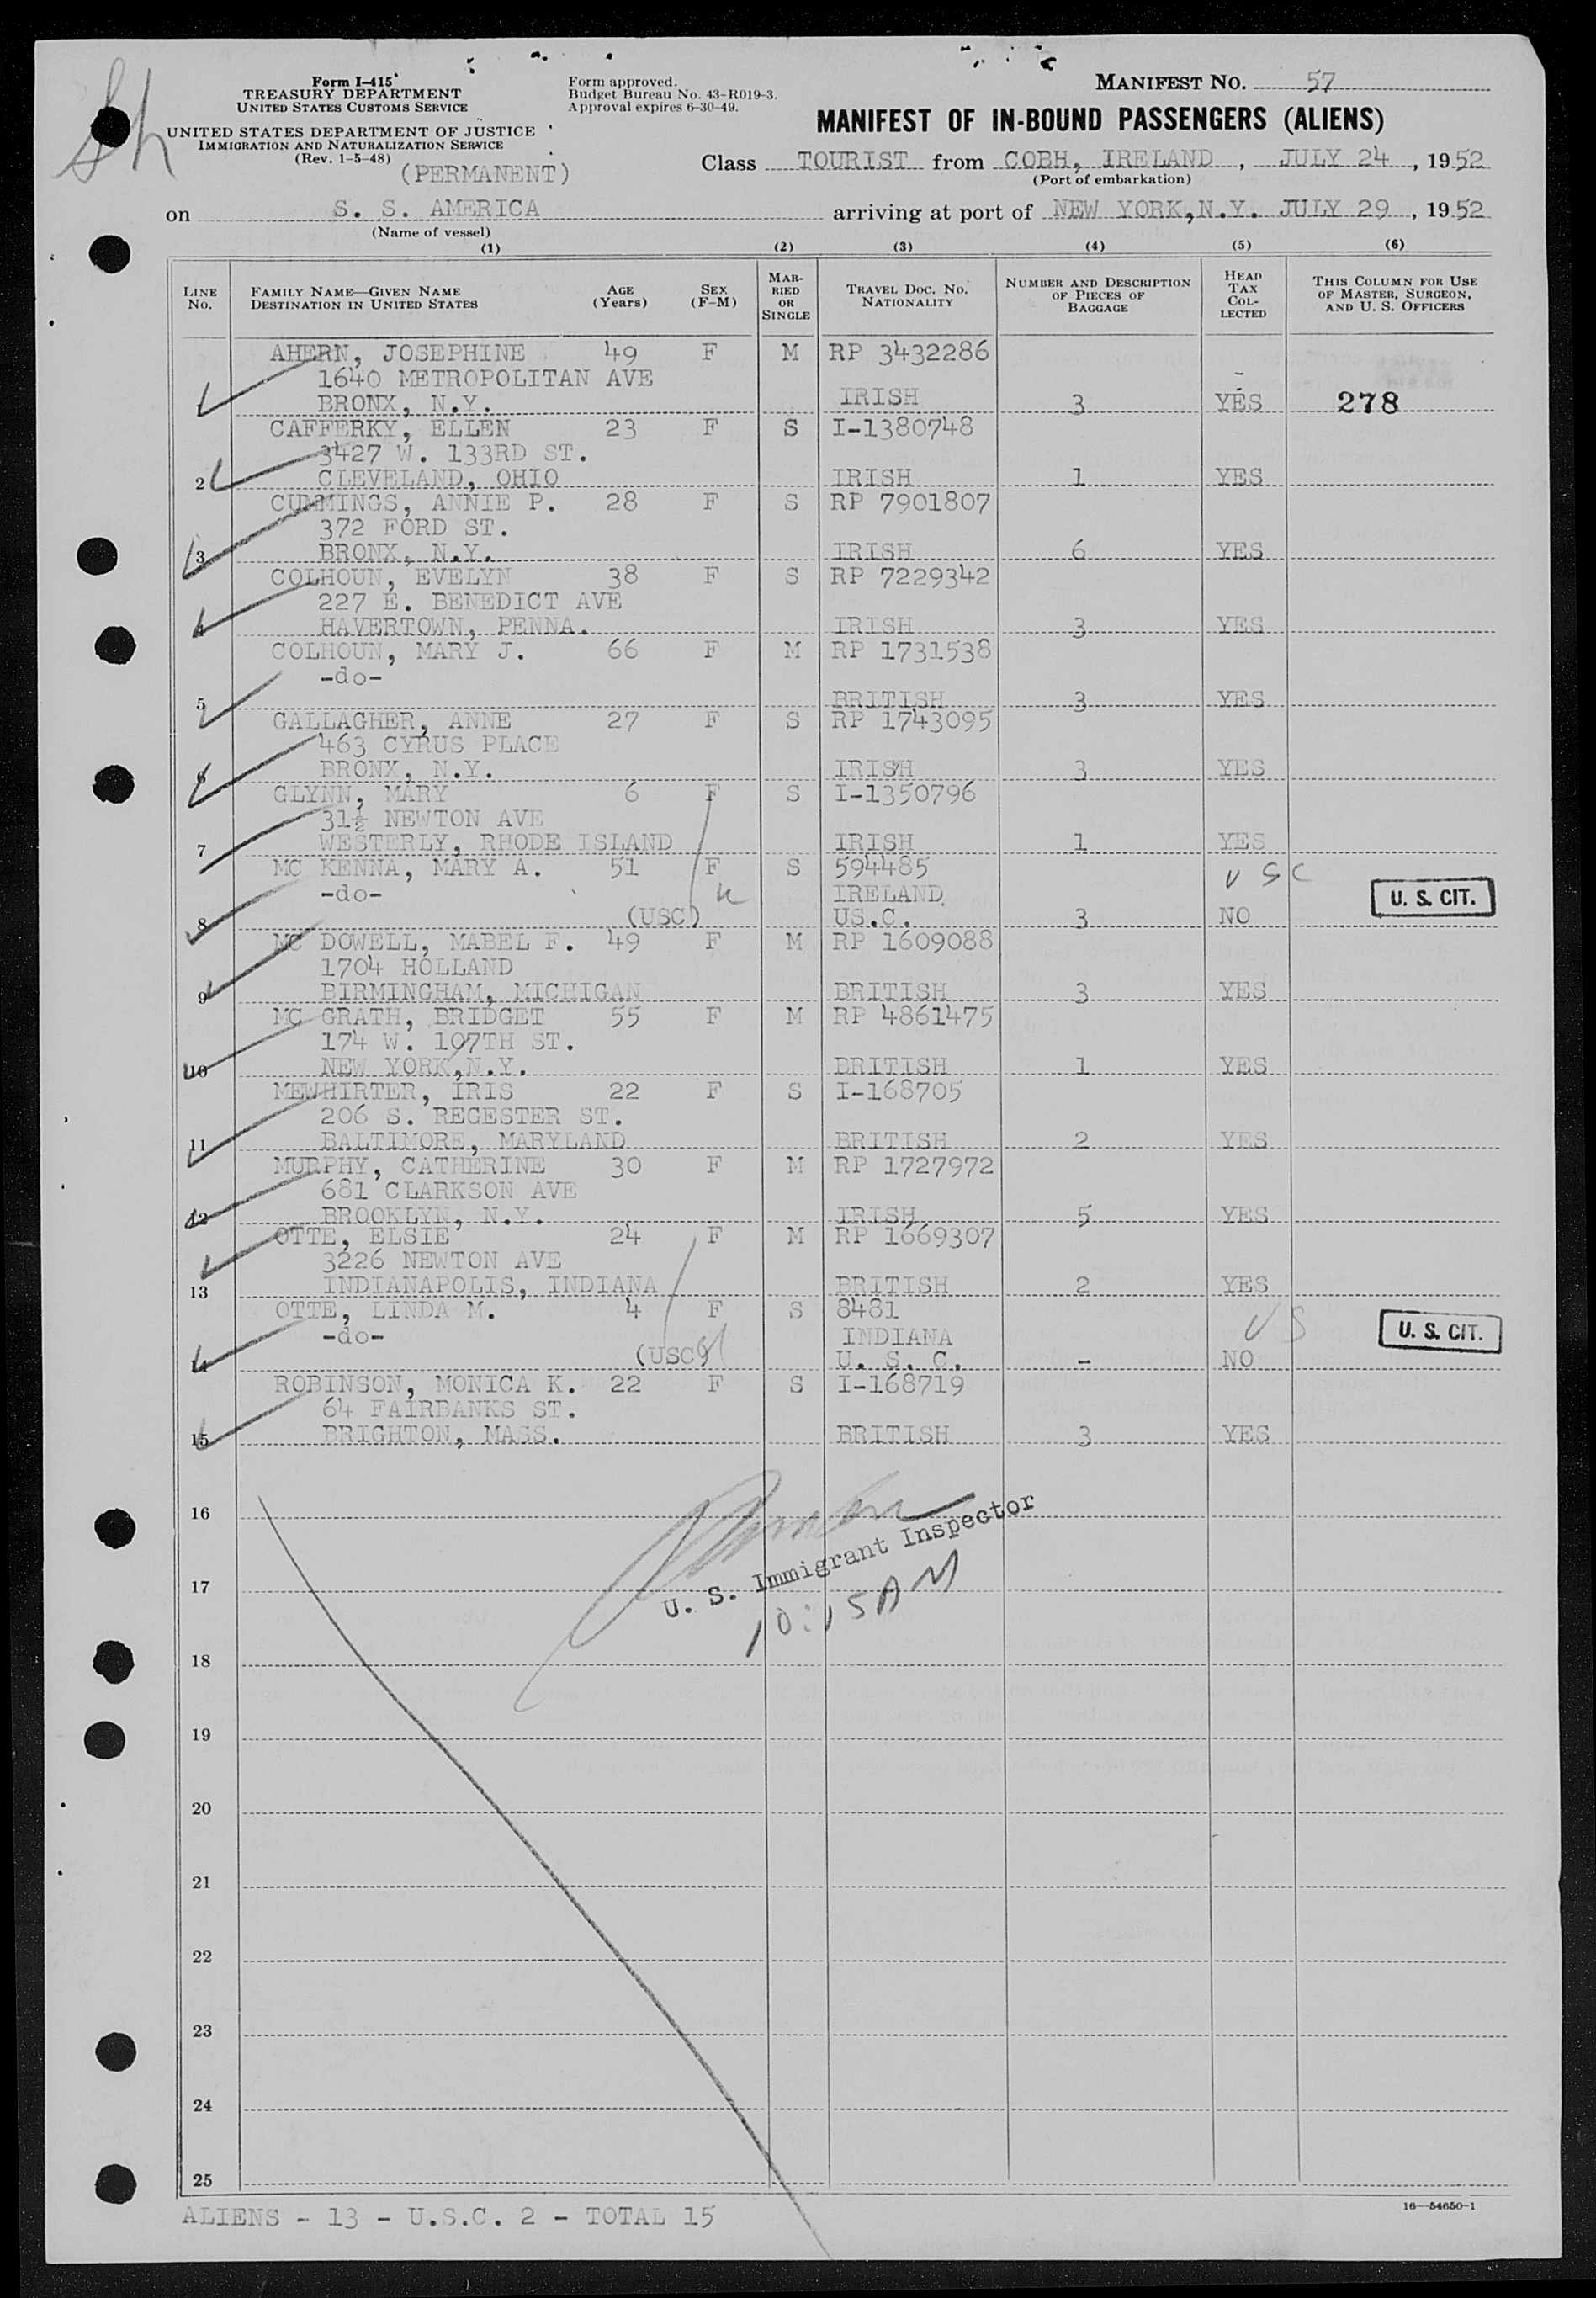 Form I-415
TREASURY DEPARTMENT
UNITED STATES CUSTOMS SERVICE
UNITED STATES DEPARTMENT OF JUSTICE
IMMIGRATION AND NATURALIZATION SERVICE
(Rev. 1-5-48)
(PERMANENT)
Form approved.
Budget Bureau No. 43-R019-3.
Approval expires 6-30-49.
MANIFEST NO. 57
MANIFEST OF IN-BOUND PASSENGERS (ALIENS)
Class TOURIST from COBH, IRELAND, JULY 24, 1952
(Port of embarkation)
on S. S. AMERICA arriving at port of NEW YORK, N.Y. JULY 29, 1952
(Name of vessel)
(1) (2) (3) (4) (5) (6)
LINE No. FAMILY NAME—GIVEN NAME DESTINATION IN UNITED STATES AGE (Years) SEX (F-M) MARRIED OR SINGLE TRAVEL DOC. NO. NATIONALITY NUMBER AND DESCRIPTION OF PIECES OF BAGGAGE HEAD TAX COLLECTED THIS COLUMN FOR USE OF MASTER, SURGEON, AND U. S. OFFICERS
AHERN, JOSEPHINE 49 F M RP 3432286
1640 METROPOLITAN AVE
BRONX, N.Y. IRISH 3 YES 278
CAFFERKY, ELLEN 23 F S I-1380748
3427 W. 133RD ST.
2 CLEVELAND, OHIO IRISH 1 YES
CUMMINGS, ANNIE P. 28 F S RP 7901807
372 FORD ST.
3 BRONX, N.Y. IRISH 6 YES
COLHOUN, EVELYN 38 F S RP 7229342
227 E. BENEDICT AVE
4 HAVERTOWN, PENNA. IRISH 3 YES
COLHOUN, MARY J. 66 F M RP 1731538
-do-
5 BRITISH 3 YES
GALLAGHER, ANNE 27 F S RP 1743095
463 CYRUS PLACE
6 BRONX, N.Y. IRISH 3 YES
GLYNN, MARY 6 F S I-1350796
31½ NEWTON AVE
7 WESTERLY, RHODE ISLAND IRISH 1 YES
MC KENNA, MARY A. 51 F S 594485 USC
-do- IRELAND U. S. CIT.
8 (USC) US.C. 3 NO
MC DOWELL, MABEL F. 49 F M RP 1609088
1704 HOLLAND
9 BIRMINGHAM, MICHIGAN BRITISH 3 YES
MC GRATH, BRIDGET 55 F M RP 4861475
174 W. 107TH ST.
10 NEW YORK, N.Y. BRITISH 1 YES
MEWHIRTER, IRIS 22 F S I-168705
206 S. REGESTER ST.
11 BALTIMORE, MARYLAND BRITISH 2 YES
MURPHY, CATHERINE 30 F M RP 1727972
681 CLARKSON AVE
12 BROOKLYN, N.Y. IRISH 5 YES
OTTE, ELSIE 24 F M RP 1669307
3226 NEWTON AVE
13 INDIANAPOLIS, INDIANA BRITISH 2 YES
OTTE, LINDA M. 4 F S 8481 US
-do- INDIANA U. S. CIT.
14 (USC) U. S. C. - NO
ROBINSON, MONICA K. 22 F S I-168719
64 FAIRBANKS ST.
15 BRIGHTON, MASS. BRITISH 3 YES
16
U. S. Immigrant Inspector
17
10:15AM
18
19
20
21
22
23
24
25
ALIENS - 13 - U.S.C. 2 - TOTAL 15
16—54650-1